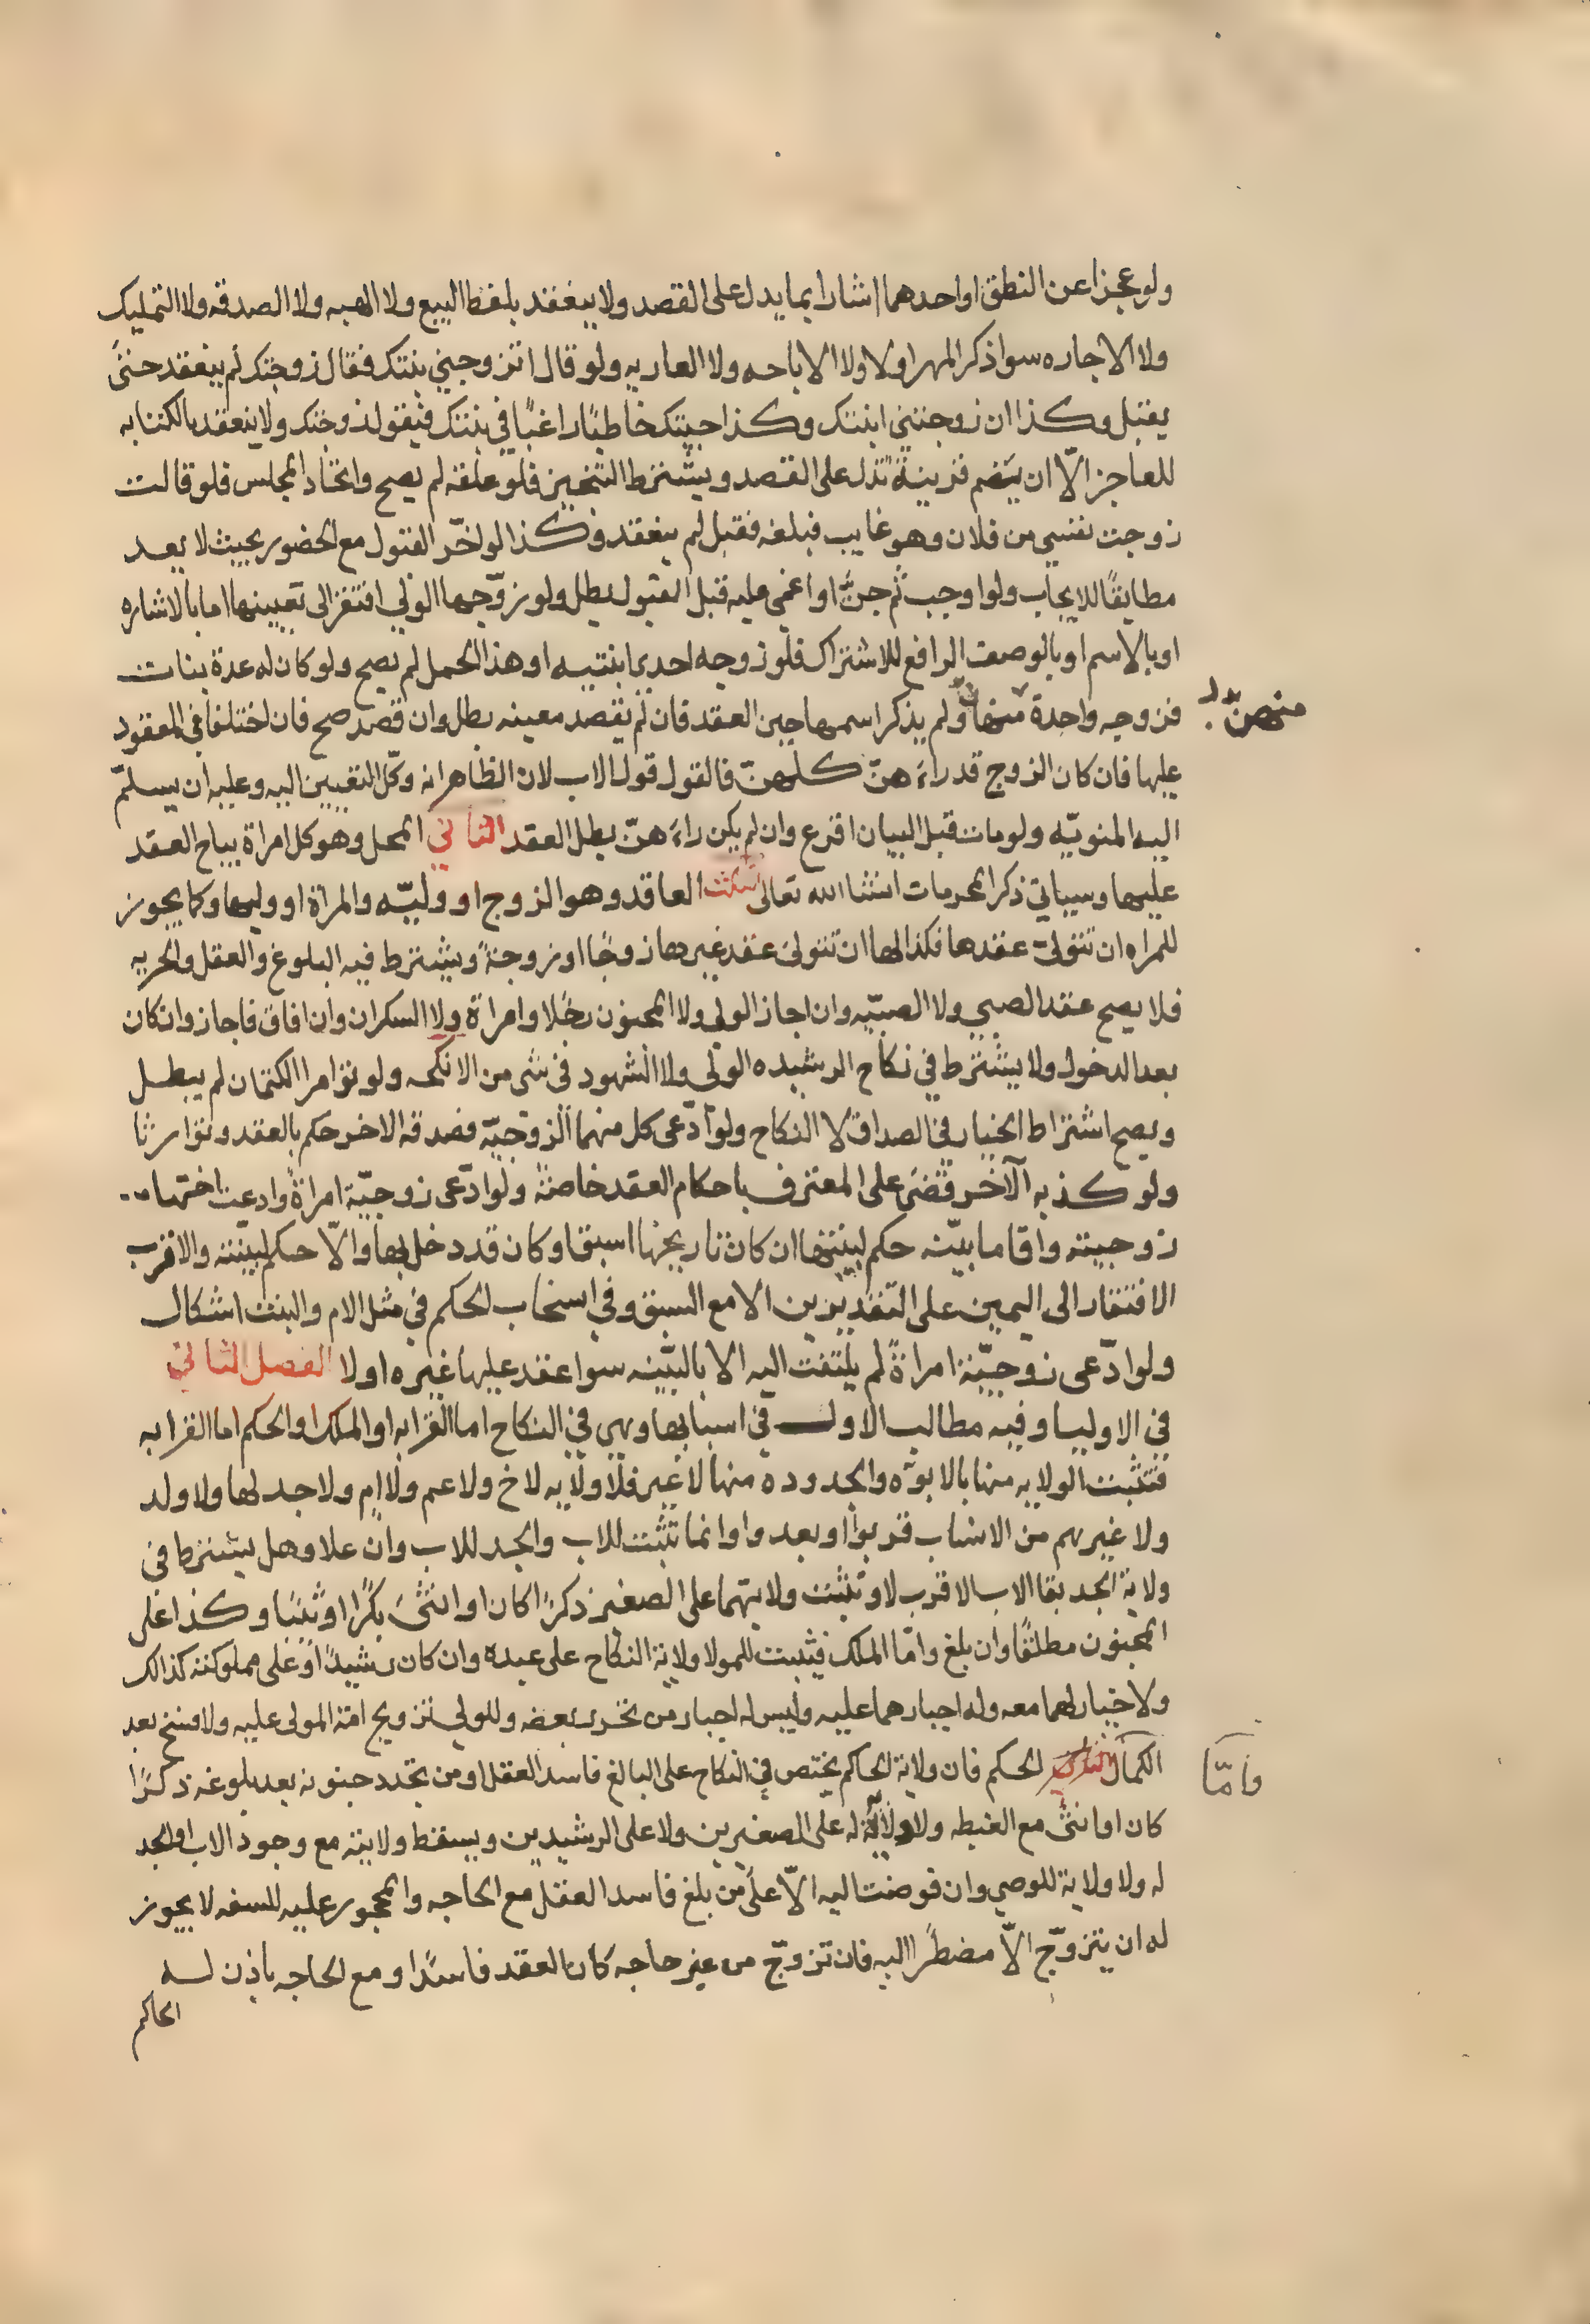 ولو عجزا عن النطق او احدهما اشار بما يدل على القصد ولا ينعقد بلفظ البيع ولا الهبه ولا الصدقه ولا التمليك
ولا الاجاره سوا ذكر المهر او لا ولا الاباحه ولا العاريه ولو قال اتزوجني بنتك فقال زوجتك لم ينعقد حتى
يقبل وكذا ان زوجتني ابنتك وكذا جيتك خاطبًا راغبًا في بنتك فيقول زوجتك ولا ينعقد بالكتابه
للعاجز الّا ان يضم قرينة تدل على القصد ويشترط التنجيز فلو علقه لم يصح واتحاد المجلس فلو قالت
زوجت نفسي من فلان وهو غايب فبلغه فقبل لم ينعقد وكذا لو اخّر القبول مع الحضور بحيث لا يعد
مطابقًا للايجاب ولو اوجب ثم جنّ او اغمى عليه قبل القبول بطل ولو زوّجها الولي افتقر الى تعيينها اما بالاشاره
او بالاسم او بالوصف الرافع للاشتراك فلو زوجه احدى ابنتيه او هذا الحمل لم يصح ولو كان له عدة بنات
فزوجه واحدة منها ولم يذكر اسمها حين العقد فان لم يقصد معينه بطل وان قصد صح فان اختلفا في المعقود
منهنّ
عليها فان كان الزوج قد راءهنّ كلهنّ فالقول قول الاب لان الظاهر انه وكّل التعيين اليه وعليه ان يسلّم
اليه المنويّه ولو مات قبل البيان اقرع وان لم يكن راءهنّ بطل العقد الثاني المحل وهو كل امراة يباح العقد
عليها وسياتي ذكر المحرمات انشا الله تعالى الثالث العاقد وهو الزوج او وليّه والمراة او وليها وكما يجوز
للمراه ان تتولى عقدها فكذا لها ان تتولى عقد غيرها زوجًا او زوجةً ويشترط فيه البلوغ والعقل والحريه
فلا يصح عقد الصبي ولا الصبيّه وان اجاز الولي ولا المجنون رجلا وامراة ولا السكران وان افاق فاجاز وان كان
بعد الدخول ولا يشترط في نكاح الرشيده الولي ولا الشهود في شي من الانكحه ولو تؤامرا الكتمان لم يبطل
ويصح اشتراط الخيار في الصداق لا النكاح ولو ادّعى كل منهما الزوجيّه فصدقه الاخر حكم بالعقد وتوارثا
ولو كذبه الآخر قضى على المعترف باحكام العقد خاصة ولو ادّعى زوجيّة امراةً وادعت اختها
زوجيته واقاما بيّنه حكم لبينتها ان كان تاريخها اسبق او كان قد دخل بها والّا حكم لبينته والاقرب
الافتقار الى اليمين على التقديرين الا مع السبق وفي انسحاب الحكم في مثل الام والبنت اشكال
ولو ادّعى زوجيّة امراةً لم يلتفت اليه الا بالبيّنه سوا عقد عليها غيره او لا الفصل الثاني
في الاوليا وفيه مطالب الاول في اسبابها وهي في النكاح اما القرابه او الملك او الحكم اما القرابه
فتثبت الولايه منها بالابوّه والجدوده منها لا غير فلا ولايه لاخ ولا عم ولا ام ولا جد لها ولا ولد
ولا غيرهم من الانساب قربوا او بعدوا وانما تثبت للاب والجد للاب وان علا وهل يشترط في
ولاية الجد بقا الاب الاقرب لا وتثبت ولايتهما على الصغير ذكرًا كان او انثى بكرًا او ثيبًا وكذا على
المجنون مطلقًا وان بلغ وامّا الملك فيثبت للمولا ولاية النكاح على عبده وان كان رشيدًا او على مملوكته كذالك
ولا خيار لهما معه وله اجبارهما عليه وليس له اجبار من تحرر بعضه وللولي تزويج امة المولى عليه ولا فسخ بعد
الكمال الحكم فان ولاية الحاكم يختص في النكاح على البالغ فاسد العقل او من تجدد جنونه بعد بلوغه ذكرًا
وامّا
كان او انثى مع الغبطه ولا ولاية له على الصغيرين ولا على الرشيدين ويسقط ولايته مع وجود الاب او الجد
له ولا ولاية للوصي وان فوضت اليه الّا على من بلغ فاسد العقل مع الحاجه والمحجور عليه للسفه لا يجوز
له ان يتزوّج الّا مضطرًا اليه فان تزوّج من غير حاجه كان العقد فاسدًا ومع الحاجه ياذن له
الحاكم